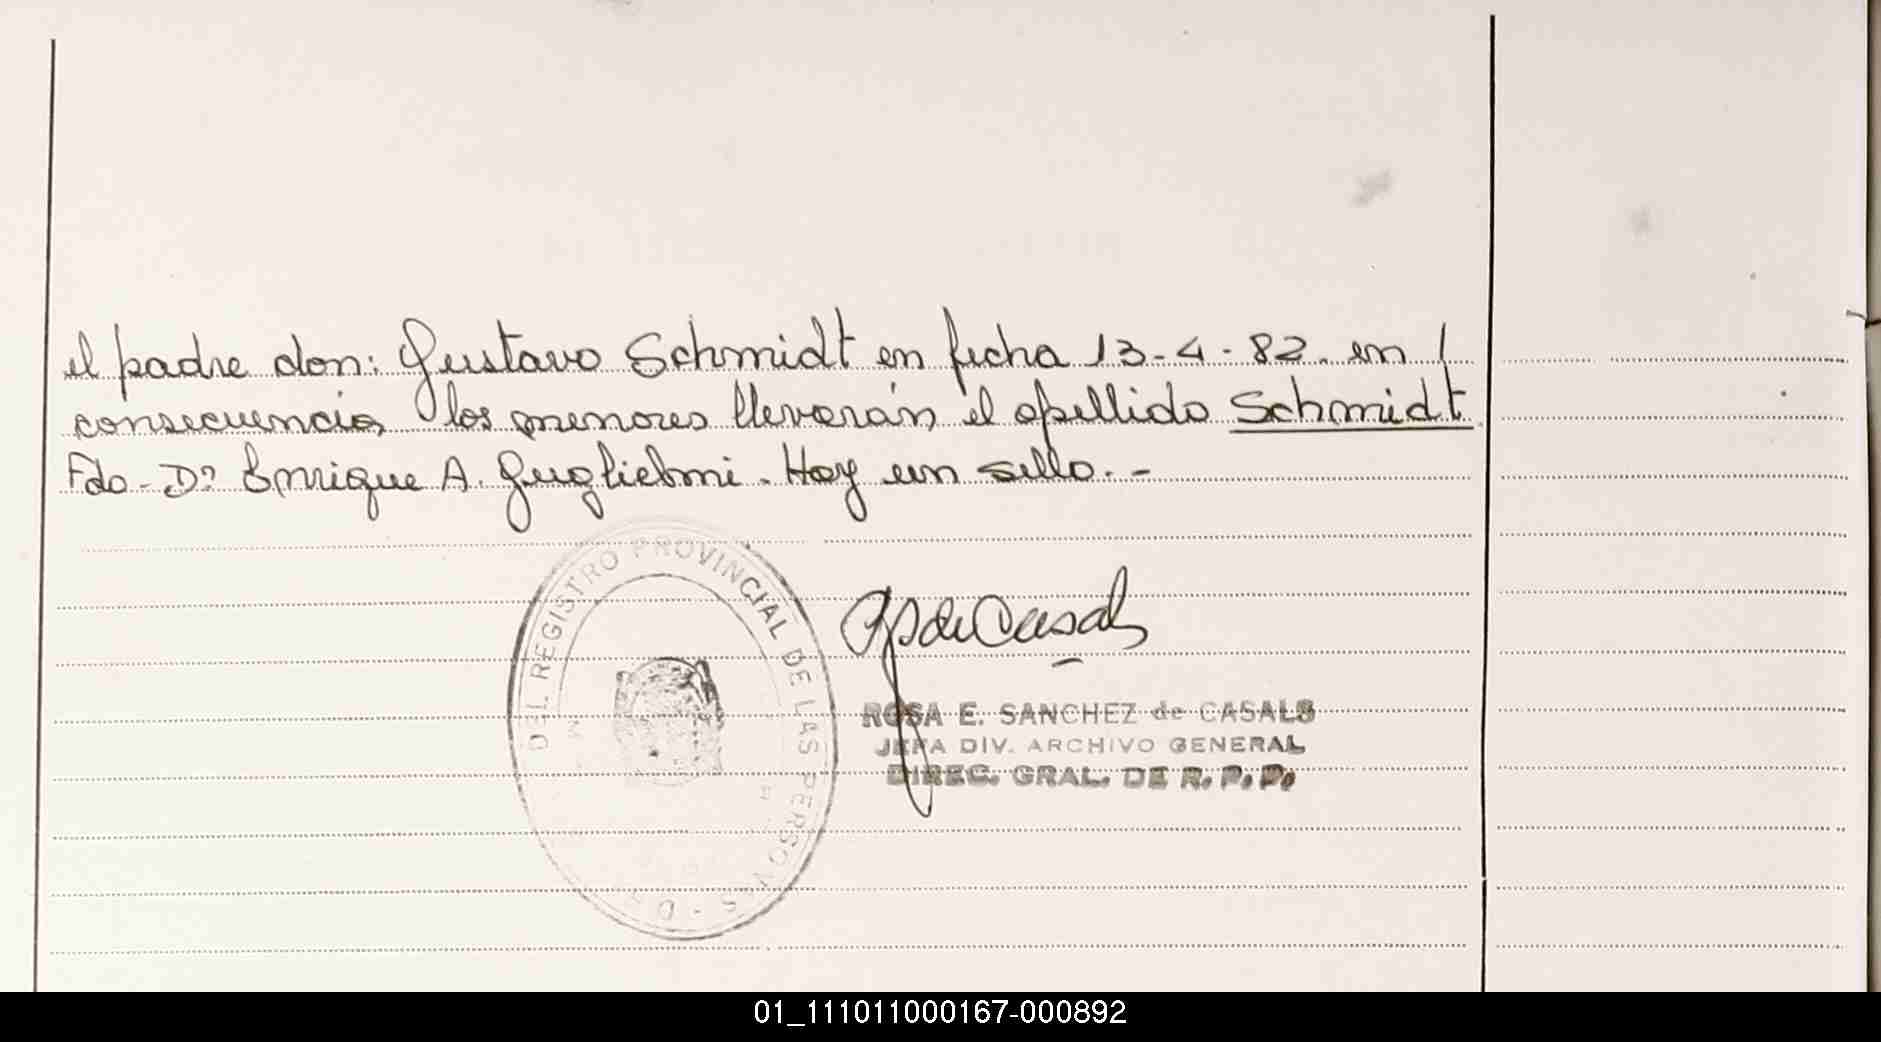 el padre don: Gustavo Schmidt en fecha 13-4-82. en /
consecuencia los menores llevarán el apellido Schmidt
Fdo- Dr Enrique A. Guglielmi. Hay un sello.-
DEL REGISTRO PROVINCIAL DE LAS PERSONAS - D
de Casals
ROSA E. SANCHEZ de CASALS
JEFA DIV. ARCHIVO GENERAL
DIREC. GRAL. DE R. P. P.
01_111011000167-000892